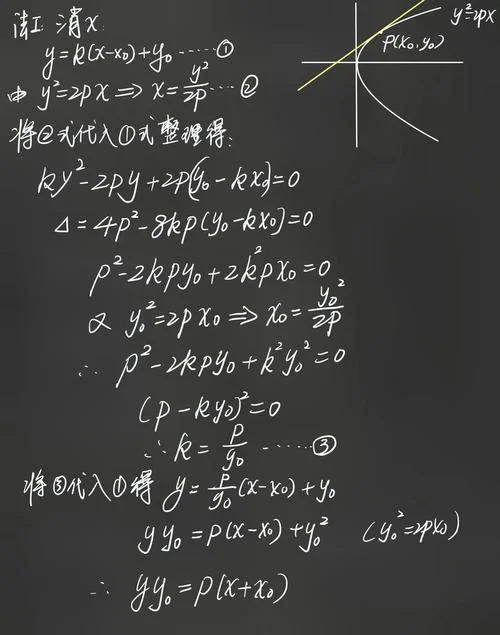 法I: 消x:
y=k(x-x₀)+y₀ ……①
由 y²=2px ⟹ x=y²/2p …②
将②式代入①式整理得:
ky²-2py+2p(y₀-kx₀)=0
Δ=4p²-8kp(y₀-kx₀)=0
p²-2kpy₀+2k²px₀=0
又 y₀²=2px₀ ⟹ x₀=y₀²/2p
∴ p²-2kpy₀+k²y₀²=0
(p-ky₀)²=0
∴k=p/y₀ ……③
将③代入①得 y=p/y₀(x-x₀)+y₀
yy₀=p(x-x₀)+y₀² (y₀²=2px₀)
∴ yy₀=p(x+x₀)
y²=2px
P(x₀,y₀)